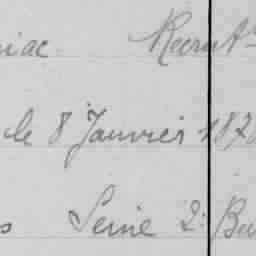 iac Recrut
le 8 Janvier 187
s Seine 2: Bu